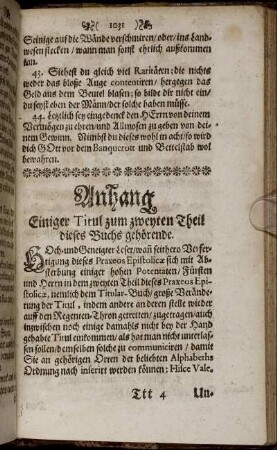 1031
Seinige auf die Wände verschmiren/ oder/ ins Land-
wesen stecken/ wann man sonst ehrlich außkommen
kan.
43. Siehest du gleich viel Raritäten: die nichts
weder das blosse Auge contentiren/ hergegen das
Geld aus dem Beutel blasen: so bilde dir nicht ein/
du seyst eben der Mann/ der solche haben müsse.
44. Letzlich sey eingedenck den HErrn von deinem
Vermögen zu ehren/ und Allmosen zu geben von dei-
nem Gewinn. Nimst du dieses wohl in acht/ so wird
dich GOtt vor dem Banquerott und Bettelstab wol
bewahren.
Anhang
Einiger Titul zum zweyten Theil
dieses Buchs gehörende.
HOch- und Geneigter Leser/ wañ seithero Verfer-
tigung dieses Praxeos Epistolicæ sich mit Ab-
sterbung einiger hohen Potentaten/ Fürsten
und Herrn in dem zweyten Theil dieses Praxeos Epi-
stolicæ, nemlich dem Titular-Buch/ grosse Verände-
rung der Titul, indem andere an deren stelle wieder
auff den Regenten-Thron getretten/ zugetragen/ auch
inzwischen noch einige damahls nicht bey der Hand
gehabde Titul einkommen/ als hat man nicht unterlas-
sen sollen/ demselben solche zu communiciren/ damit
Sie an gehörigen Oren der beliebten Alphabeths
Ordnung nach inserirt werden können: Hisce Vale.
Ttt 4
Un-